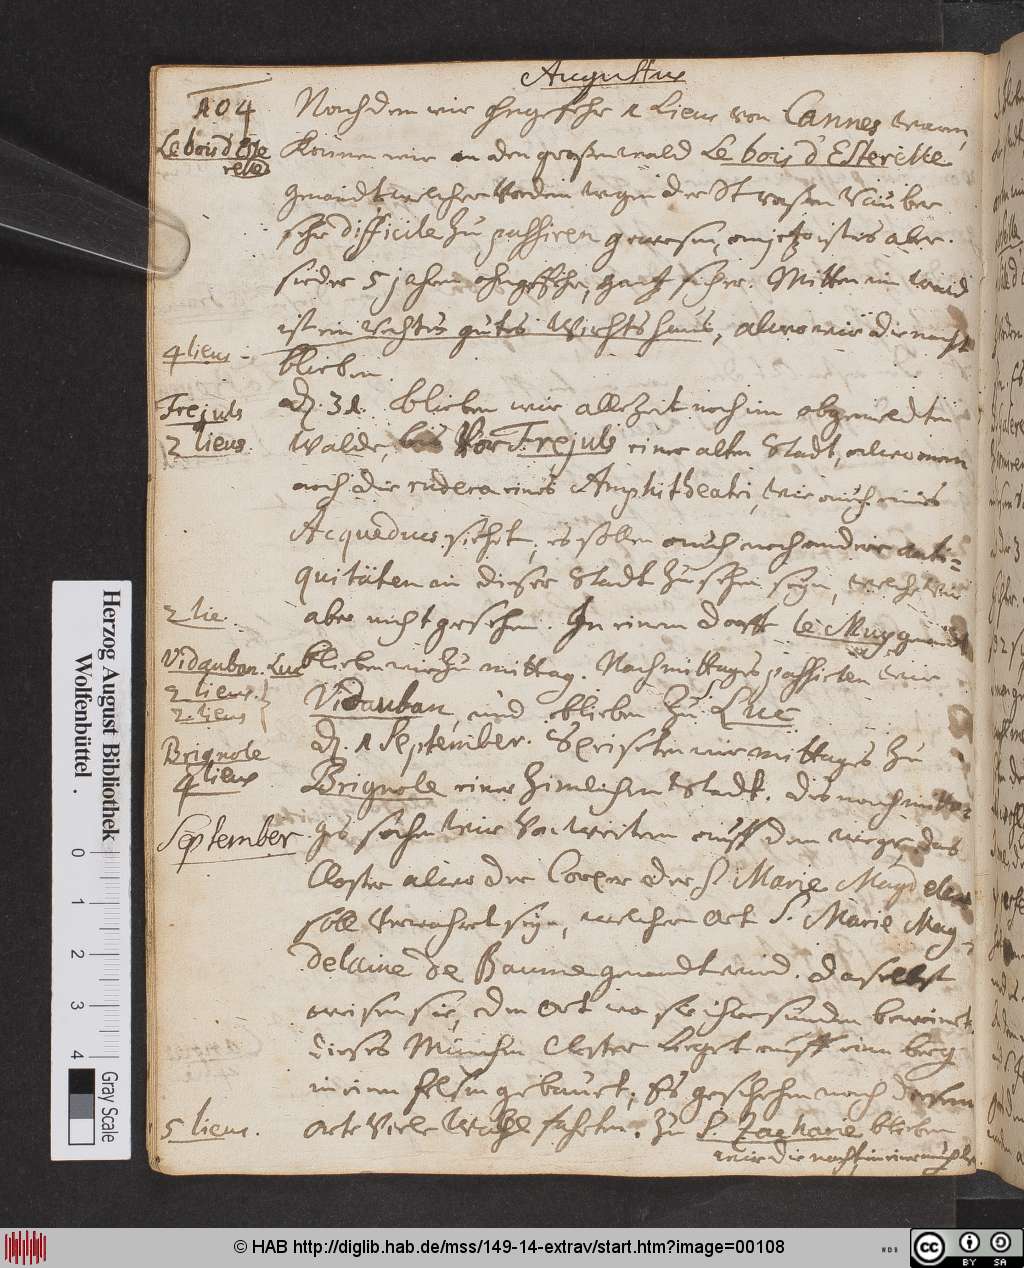 Augustus
104
Nachdem wir ohngefehr 1 Lieue von Cannes waren,
Le bois d'Este
relle
kommen wir an den großen wald Le bois d'Esterelle
genandt welcher vorden wegen der Straßen Räuber
sehr difficile zu passiren gewesen, anjetzo ist es aber
sieder 5 jahren ohngefehr, gantz sicher. Mitten im wald
ist ein rechtes gutes Wirthshaus, alwo wir die nacht
4 lieus
blieben.
d. 31. blieben wir allezeit noch im obgemeldten
Frejuls
2 lieus.
Walde, bis vor Frejuls einer alten Stadt, alwo man
noch die rudera eines Amphitheatri, wie auch eines
Acqueducs siehet, es sollen auch noch andere anti=
quitäten in dieser Stadt zu sehen seyn, welche wir
2 lie.
aber nicht gesehen. In einem dorffe le Muy genandt
Vidauban. Luc
blieben wir zu mittag. Nachmittages passirten wir
2 lieus.
2. lieus
Vidauban, und blieben zu Luc
d. 1 September. Speiseten wir mittages zu
Brignole
4 lieus
Brignole einer zimlichen Stadt. des nachmitta-
September
ges sahen wir von weitem auff dem wege, das
Closter alwo der Corper der S. Marie Magdelene
soll verwahret seyn, welcher Ort S. Marie Mag-
delaine de Baume genandt wird. daselbst
weisen sie, den Ort wo sie ihre sünden beweinet
dieses München Closter lieget auff einem berg
in einen felsen gebauet, Es geschehen nach diesem
5 lieus.
orte viele Wahlfahrten. Zu S. Zacharie blieben
wir die nacht in einer
Herzog August Bibliothek
Wolfenbüttel.
0 1 2 3 4
Gray Scale
© HAB http://diglib.hab.de/mss/149-14-extrav/start.htm?image=00108
WDB
cc BY SA